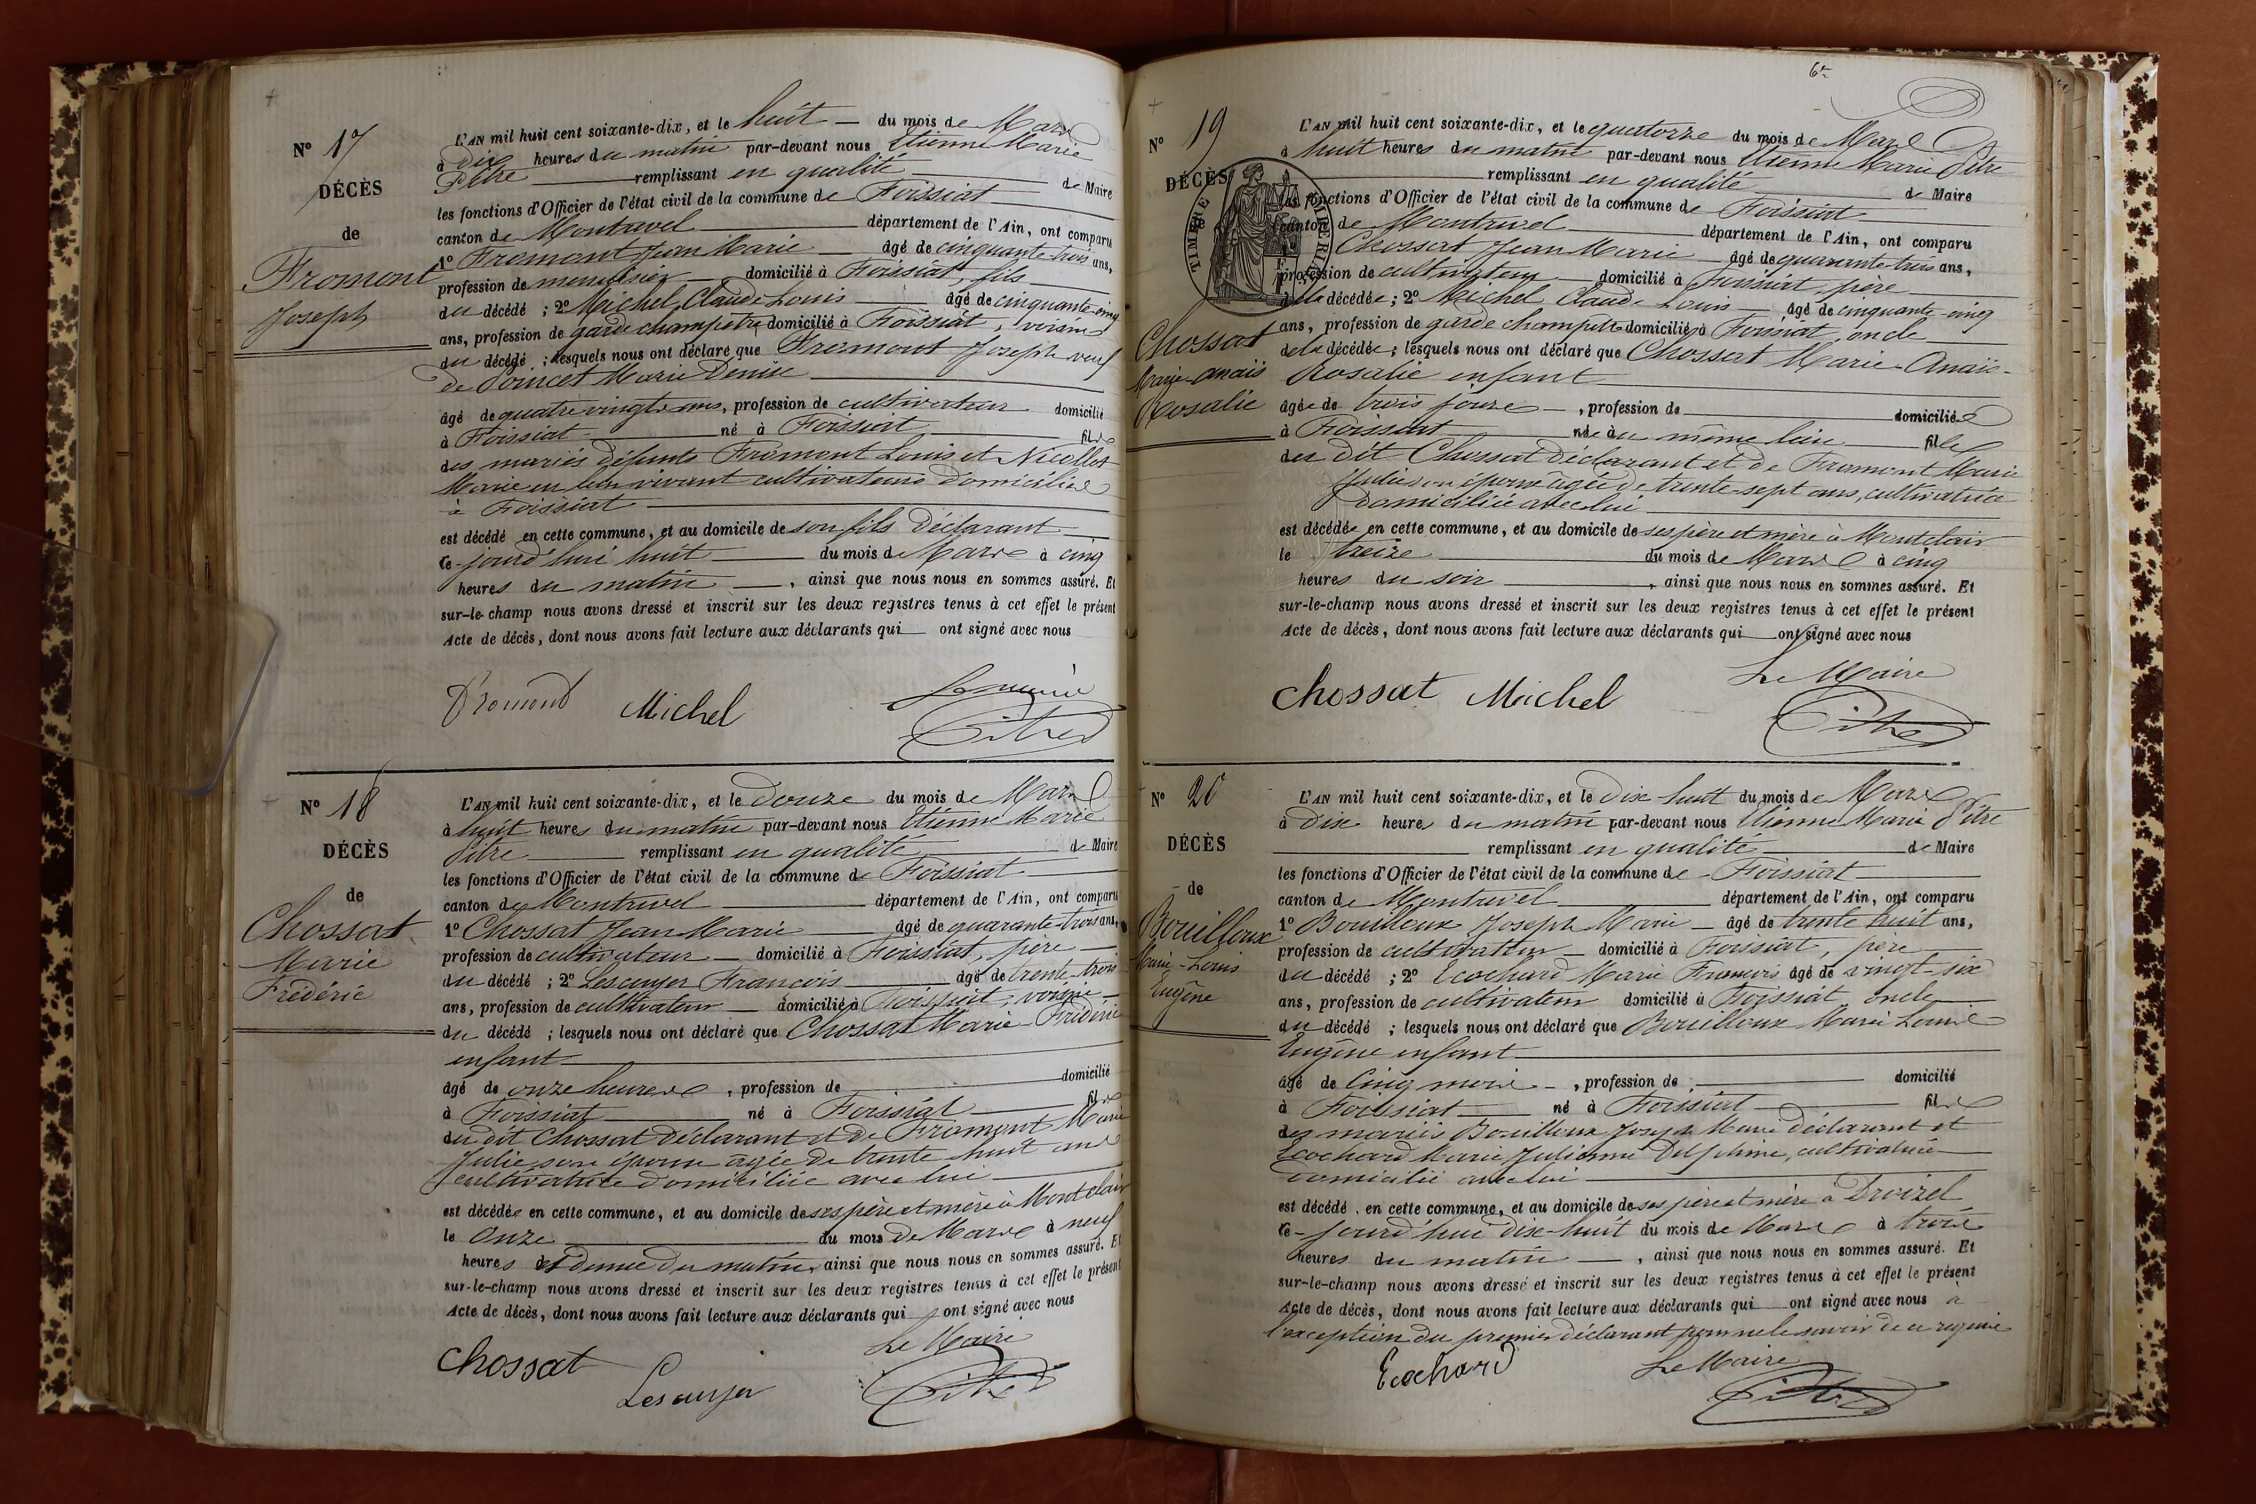 N° 17
DÉCÈS
de
Fromont
Joseph
L'AN mil huit cent soixante-dix, et le huit du mois de Mars
à dix heures du matin par-devant nous Etienne Marie
Pitre remplissant en qualité de Maire
les fonctions d'Officier de l'état civil de la commune de Foissiat
canton de Montrevel département de l'Ain, ont comparu
1° Fromont Jean Marie âgé de cinquante-trois ans,
profession de menuisier domicilié à Foissiat, fils
du décédé ; 2° Michel Claude Louis âgé de cinquante-cinq
ans, profession de garde champêtre domicilié à Foissiat, voisin
du décédé ; lesquels nous ont déclaré que Fromont Joseph veuf
de Poncet Marie Denise
âgé de quatre vingts ans, profession de cultivateur domicilié
à Foissiat né à Foissiat fils
des mariés défunts Fromont Louis et Nicollet
Marie en leur vivant cultivateurs domiciliés
à Foissiat
est décédé en cette commune, et au domicile de son fils déclarant
ce-jourd'hui huit du mois de Mars à cinq
heures du matin, ainsi que nous nous en sommes assuré. Et
sur-le-champ nous avons dressé et inscrit sur les deux registres tenus à cet effet le présent
Acte de décès, dont nous avons fait lecture aux déclarants qui ont signé avec nous
Fromont Michel Le maire
Pitre
N° 18
DÉCÈS
de
Chossat
Marie
Frédéric
L'AN mil huit cent soixante-dix, et le douze du mois de Mars
à huit heures du matin par-devant nous Etienne Marie
Pitre remplissant en qualité de Maire
les fonctions d'Officier de l'état civil de la commune de Foissiat
canton de Montrevel département de l'Ain, ont comparu
1° Chossat Jean Marie âgé de quarante-trois ans,
profession de cultivateur domicilié à Foissiat, père
du décédé ; 2° Lescuyer François âgé de trente-trois
ans, profession de cultivateur domicilié à Foissiat, voisin
du décédé ; lesquels nous ont déclaré que Chossat Marie-Frédéric
enfant
âgé de onze heures, profession de domicilié
à Foissiat né à Foissiat fils
du dit Chossat déclarant et de Fromont Marie
Julie son épouse âgée de trente huit ans
cultivatrice domiciliée avec lui
est décédée en cette commune, et au domicile de ses père et mère à Montclair
le onze du mois de Mars à neuf
heures et demie du matin, ainsi que nous nous en sommes assuré. Et
sur-le-champ nous avons dressé et inscrit sur les deux registres tenus à cet effet le présent
Acte de décès, dont nous avons fait lecture aux déclarants qui ont signé avec nous
Le Maire
Chossat Lescuyer Pitre
6e
N° 19
DÉCÈS
TIMBRE IMPERIAL
Chossat
Marie-Anaïs
Rosalie
L'AN mil huit cent soixante-dix, et le quatorze du mois de Mars
à huit heures du matin par-devant nous Etienne Marie Pitre
remplissant en qualité de Maire
les fonctions d'Officier de l'état civil de la commune de Foissiat
canton de Montrevel département de l'Ain, ont comparu
Chossat Jean Marie âgé de quarante-trois ans,
profession de cultivateur domicilié à Foissiat, père
de la décédée ; 2° Michel Claude Louis âgé de cinquante-cinq
ans, profession de garde champêtre domicilié à Foissiat, oncle
de la décédée ; lesquels nous ont déclaré que Chossat Marie-Anaïs-
Rosalie enfant
âgée de trois jours, profession de domiciliée
à Foissiat née au même lieu fille
du dit Chossat déclarant et de Fromont Marie
Julie son épouse âgée de trente-sept ans, cultivatrice
domiciliée avec lui
est décédée en cette commune, et au domicile de ses père et mère à Montclair
le treize du mois de Mars à cinq
heures du soir, ainsi que nous nous en sommes assuré. Et
sur-le-champ nous avons dressé et inscrit sur les deux registres tenus à cet effet le présent
Acte de décès, dont nous avons fait lecture aux déclarants qui ont signé avec nous
Le Maire
Chossat Michel Pitre
N° 20
DÉCÈS
de
Bouilloux
Marie-Louis
Eugène
L'AN mil huit cent soixante-dix, et le dix-huit du mois de Mars
à dix heures du matin par-devant nous Etienne Marie Pitre
remplissant en qualité de Maire
les fonctions d'Officier de l'état civil de la commune de Foissiat
canton de Montrevel département de l'Ain, ont comparu
1° Bouilloux Joseph Marie âgé de trente huit ans,
profession de cultivateur domicilié à Foissiat, père
du décédé ; 2° Ecochard Marie François âgé de vingt-six
ans, profession de cultivateur domicilié à Foissiat, oncle
du décédé ; lesquels nous ont déclaré que Bouilloux Marie Louis
Eugène enfant
âgé de cinq mois, profession de domicilié
à Foissiat né à Foissiat fils
des mariés Bouilloux Joseph Marie déclarant et
Ecochard Marie Julienne Delphine, cultivatrice
domiciliée avec lui
est décédé en cette commune, et au domicile de ses père et mère à Droizel
ce-jourd'hui dix-huit du mois de Mars à trois
heures du matin, ainsi que nous nous en sommes assuré. Et
sur-le-champ nous avons dressé et inscrit sur les deux registres tenus à cet effet le présent
Acte de décès, dont nous avons fait lecture aux déclarants qui ont signé avec nous à
l'exception du premier déclarant pour ne le savoir de ce requis
Ecochard Le Maire
Pitre